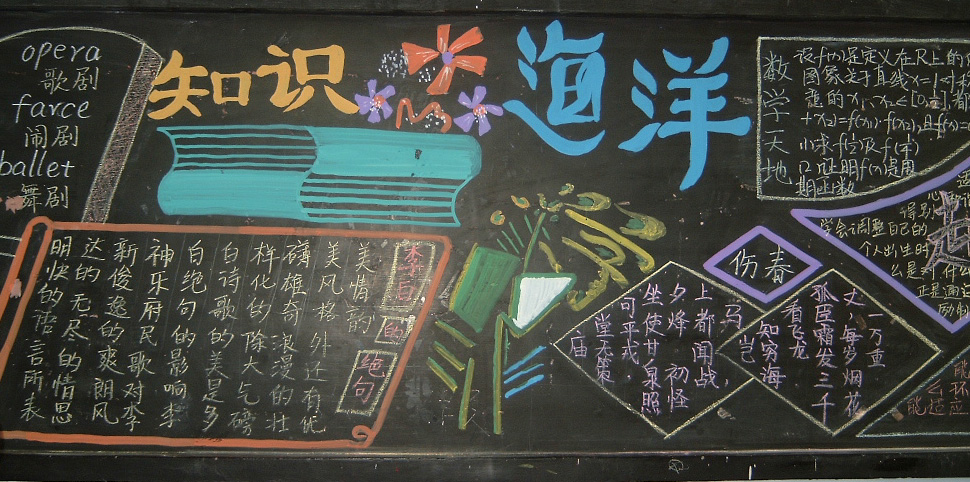 opera
歌剧
farce
闹剧
ballet
舞剧
知识海洋
数学天地
设f(x)是定义在R上的
图象关于直线x=1对称
意的x1、x2∈[0,½],都
+x2)=f(x1)·f(x2),且f(1)=
求f(½)及f(¼)
证明f(x)是周
期函数
李白的绝句
明快的语言所表
达的无尽的情思
新俊逸的爽朗风
神乐府民歌对李
白绝句的影响李
白诗歌的美是多
样化的除大气磅
礴雄奇浪漫的壮
美情韵外还有优
美风格
伤春
庙
堂无策
可平戎,
坐使甘泉照
夕烽初怪
上都闻战,
马
岂
知穷海
看飞龙
孤臣霜发三千
丈,每岁烟花
一万重
得到
学会调整自己的
个人出生时